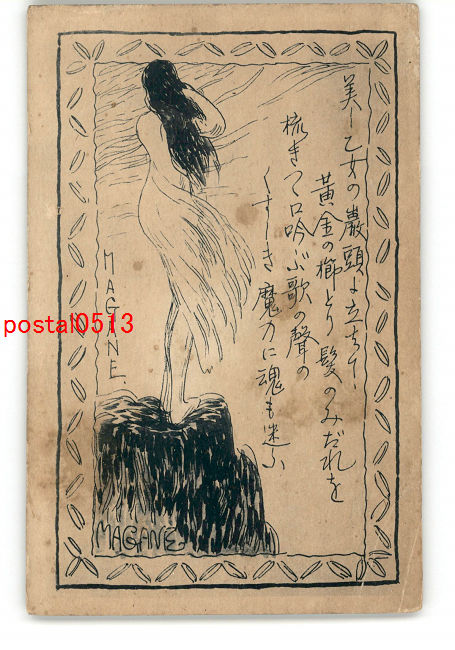 美し乙女の巌頭に立ちて
黄金の櫛とり髪のみだれを
梳きつゝ口吟ぶ歌の聲の
くすしき魔力に魂も迷ふ
MAGANE.
MAGANE
postal0513